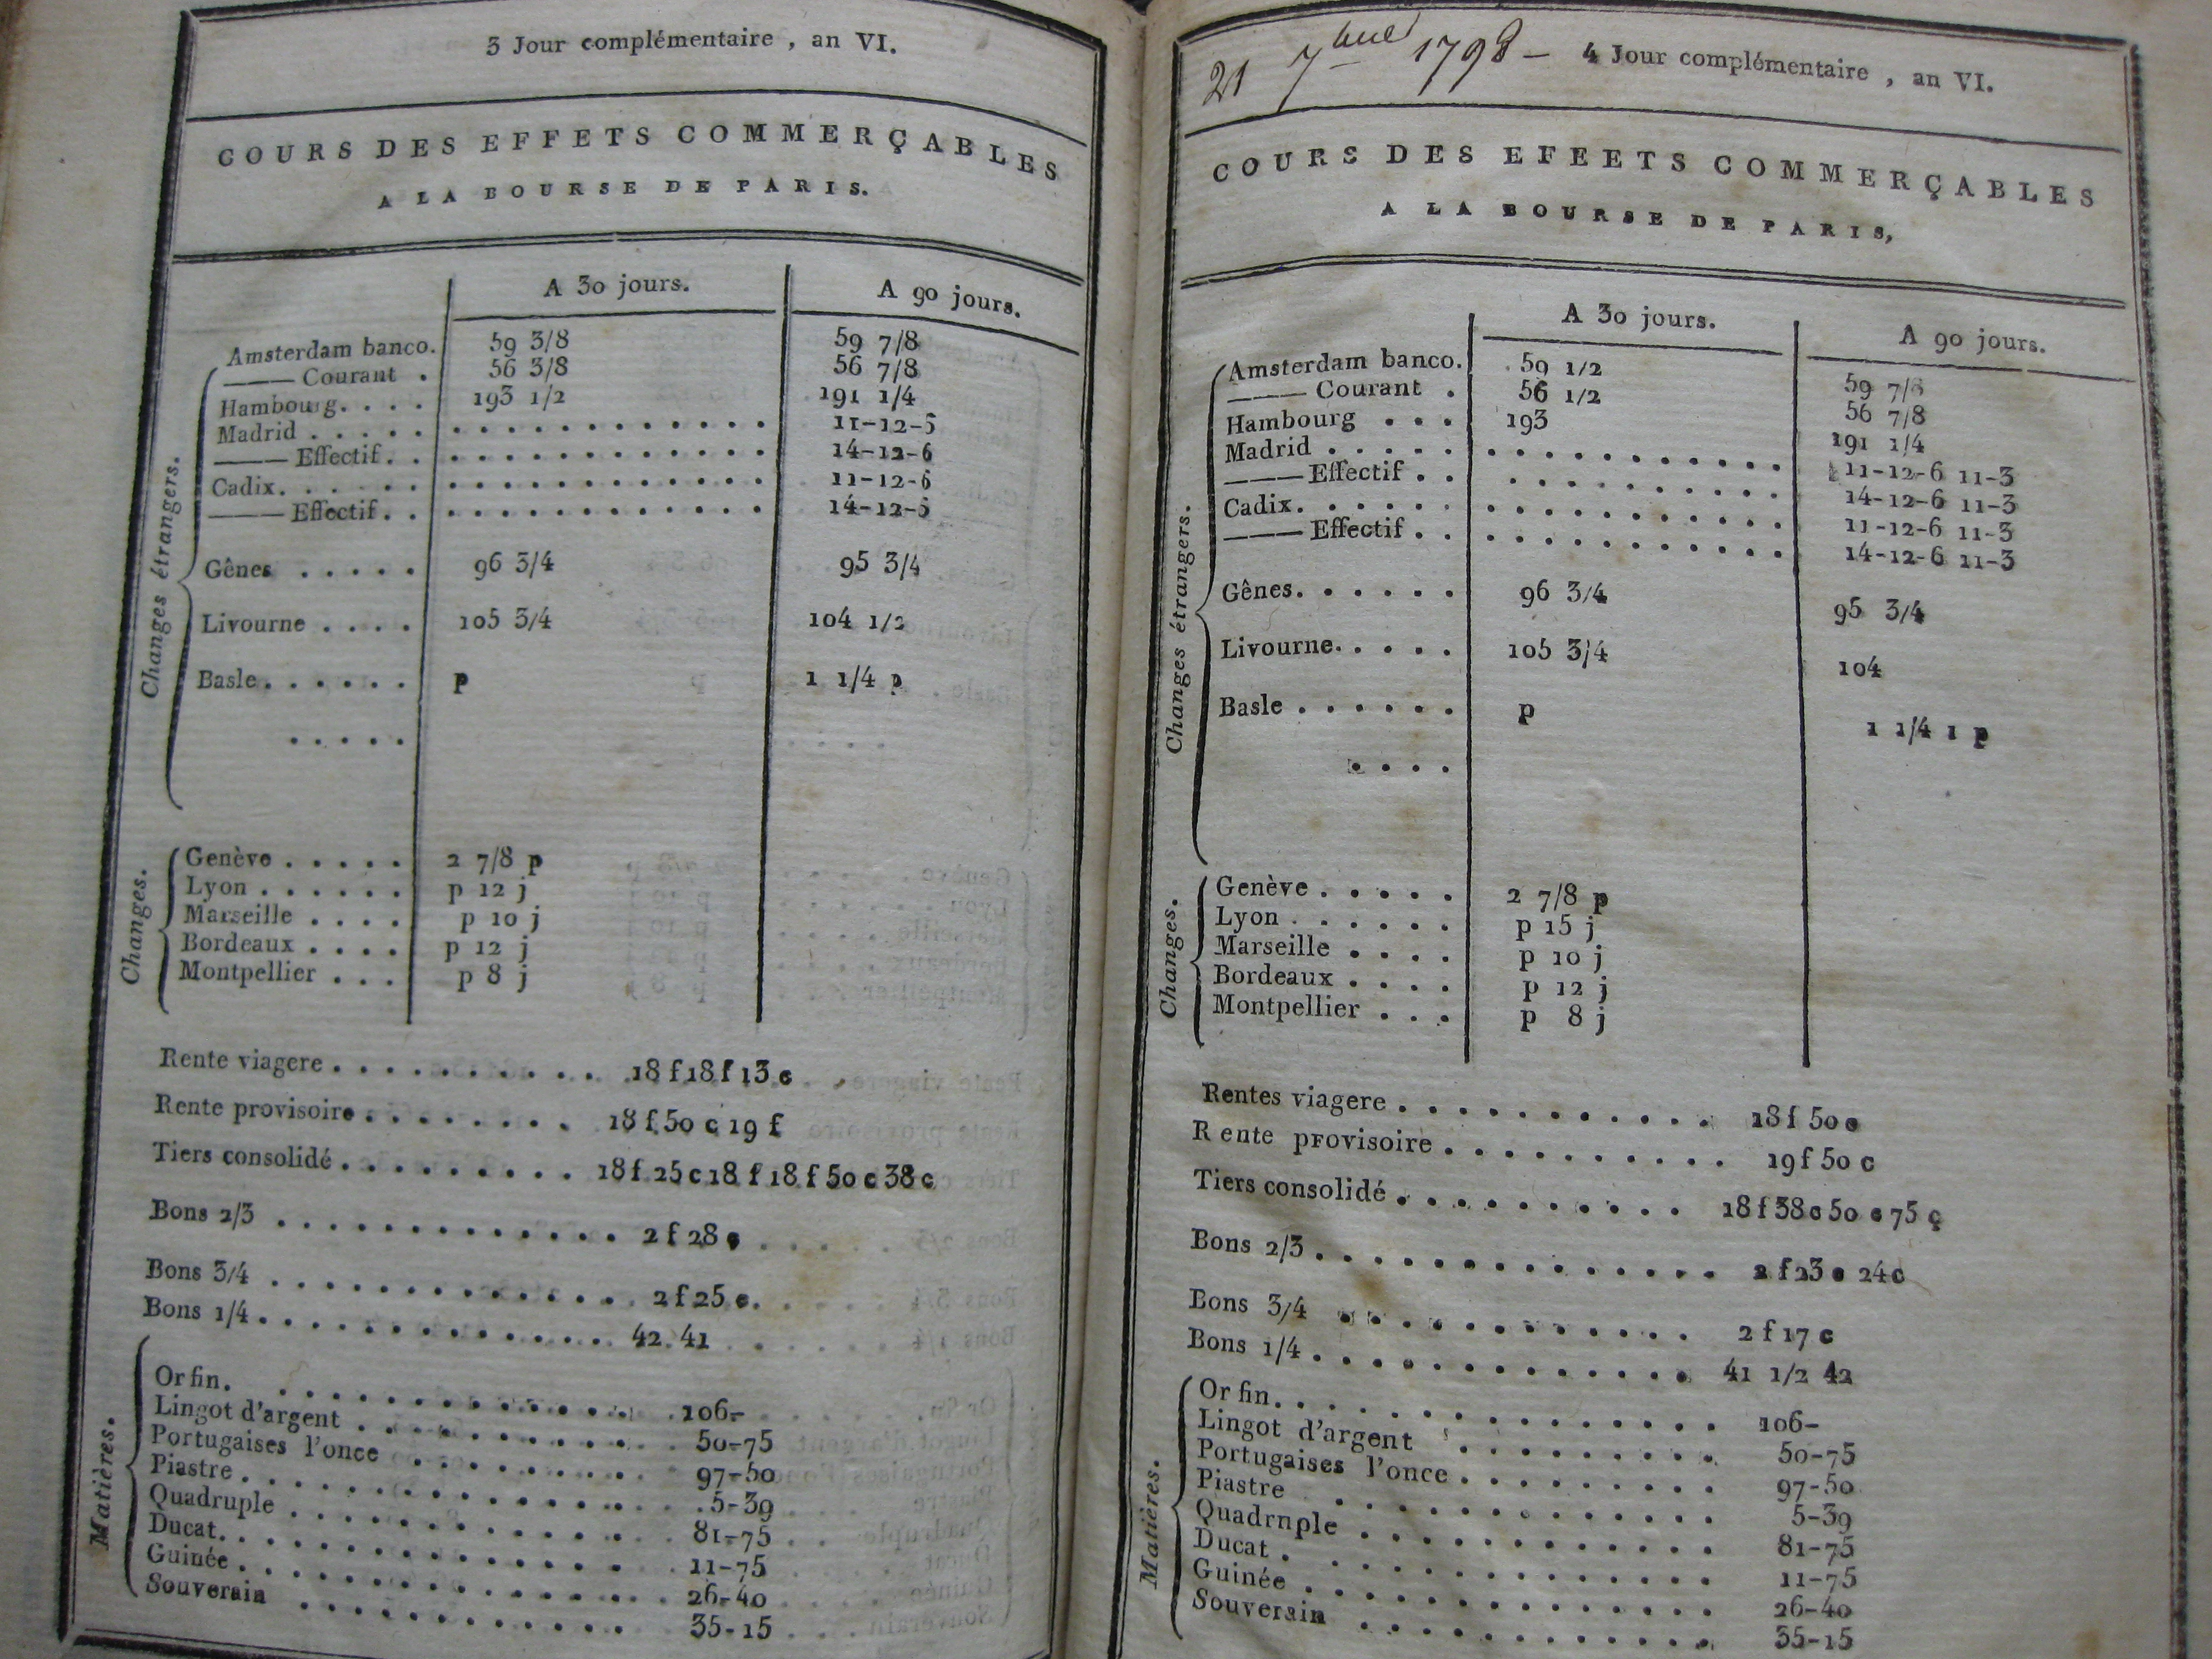 3 Jour complémentaire, an VI.
COURS DES EFFETS COMMERÇABLES
A LA BOURSE DE PARIS.
A 30 jours. A 90 jours.
Changes étrangers.
Amsterdam banco. 59 3/8 59 7/8
——— Courant . 56 3/8 56 7/8
Hambourg. . . . 193 1/2 191 1/4
Madrid . . . . . . . . . . . . . . . . . 11-12-6
——— Effectif. . . . . . . . . . . . . . 14-12-6
Cadix. . . . . . . . . . . . . . . . . . 11-12-6
——— Effectif. . . . . . . . . . . . . . 14-12-6
Gênes . . . . . 96 3/4 95 3/4
Livourne . . . . 105 3/4 104 1/2
Basle. . . . . . p 1 1/4 p
. . . . .
Changes.
Genève . . . . . 2 7/8 p
Lyon . . . . . . p 12 j
Marseille . . . . p 10 j
Bordeaux . . . . p 12 j
Montpellier . . . p 8 j
Rente viagere . . . . . . . . . . 18 f 18 f 13 c
Rente provisoire . . . . . . . . 18 f 50 c 19 f
Tiers consolidé . . . . . . . . . 18 f 25 c 18 f 18 f 50 c 38 c
Bons 2/3 . . . . . . . . . . . . . 2 f 28 c
Bons 3/4 . . . . . . . . . . . . . 2 f 25 c.
Bons 1/4 . . . . . . . . . . . . . 42. 41
Matières.
Or fin. . . . . . . . . . . . . 106-
Lingot d'argent . . . . . . . . . . 50-75
Portugaises l'once . . . . . . . . 97-50
Piastre . . . . . . . . . . . . . 5-39
Quadruple . . . . . . . . . . . . 81-75
Ducat. . . . . . . . . . . . . . 11-75
Guinée . . . . . . . . . . . . . 26-40
Souverain . . . . . . . . . . . 35-15
21 7bre 1798 - 4 Jour complémentaire, an VI.
COURS DES EFEETS COMMERÇABLES
A LA BOURSE DE PARIS,
A 30 jours. A 90 jours.
Changes étrangers.
Amsterdam banco. 59 1/2 59 7/8
——— Courant . 56 1/2 56 7/8
Hambourg . . . 193 191 1/4
Madrid . . . . . . . . . . . . . . . . . 11-12-6 11-3
——— Effectif . . . . . . . . . . . . . . 14-12-6 11-3
Cadix. . . . . . . . . . . . . . . . . . 11-12-6 11-3
——— Effectif . . . . . . . . . . . . . . 14-12-6 11-3
Gênes. . . . . . 96 3/4 95 3/4
Livourne. . . . . 105 3/4 104
Basle . . . . . . p 1 1/4 1 p
. . . .
Changes.
Genève . . . . . 2 7/8 p
Lyon . . . . . . p 15 j
Marseille . . . . p 10 j
Bordeaux . . . . p 12 j
Montpellier . . . p 8 j
Rentes viagere . . . . . . . . . . . 18 f 50 c
R ente provisoire . . . . . . . . . . 19 f 50 c
Tiers consolidé . . . . . . . . . . 18 f 38 c 50 c 75 ç
Bons 2/3 . . . . . . . . . . . . . . 2 f 23 c 24 c
Bons 3/4 . . . . . . . . . . . . 2 f 17 c
Bons 1/4 . . . . . . . . . . . . . 41 1/2 42
Matières.
Or fin. . . . . . . . . . . . . . 106-
Lingot d'argent . . . . . . . . . 50-75
Portugaises l'once . . . . . . . . 97-50
Piastre . . . . . . . . . . . . 5-39
Quadrnple . . . . . . . . . . . 81-75
Ducat . . . . . . . . . . . . . 11-75
Guinée . . . . . . . . . . . . . 26-40
Souverain . . . . . . . . . . . 35-15